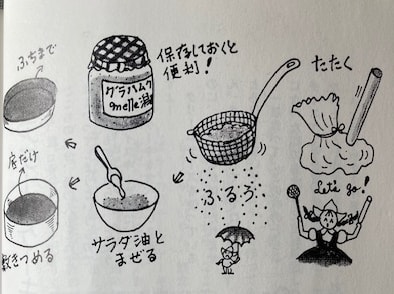 たたく
Let's go!
ふるう
保存しておくと
便利！
グラハムク
サラダ油と
まぜる
ふちまで
底だけ
敷きつめる